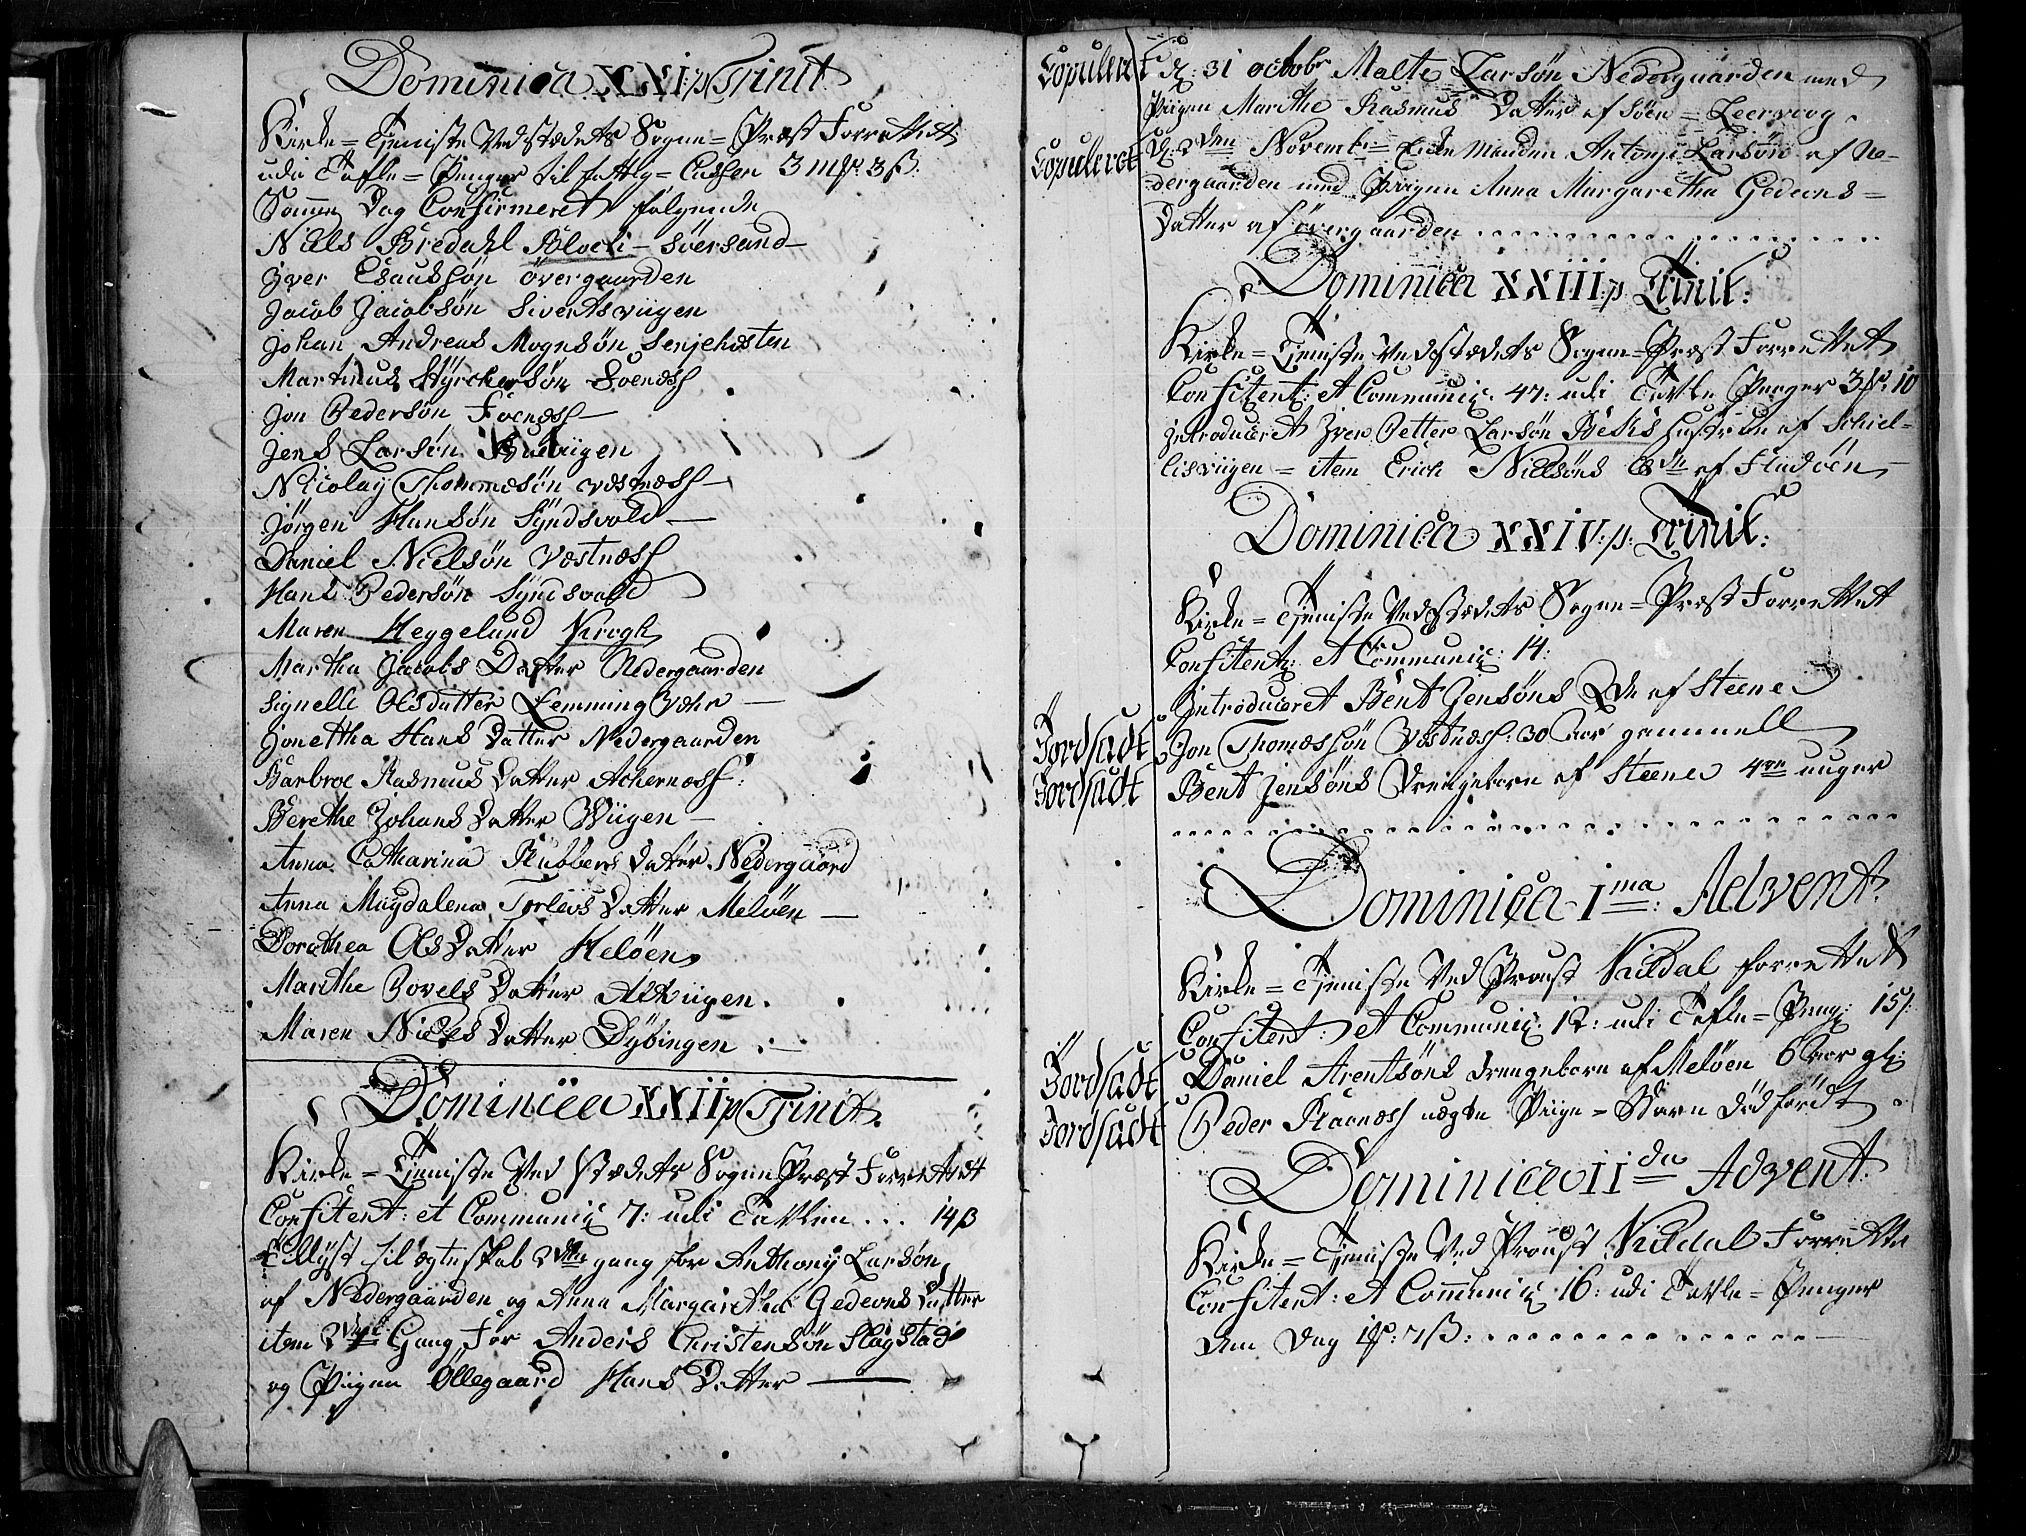 Dominica XXI p Trinit
Kirke = Tieniste Ved Stædets Sogne = Præst Forrettet
udi Tafle = Penger til fattig = Cassen 3 mk 3 ß.
Samme Dag Confirmeret følgende
Niels Bredahl Bloch - Søersand
Iver Esauksøn Övergaarden
Jacob Jacobsøn Sivertsviigen
Johan Andreas Mognsøn Senjehesten
Martinus Styrchersøn Svendss
Jon Pedersøn
Jens Larsøn
Nicolay Thommesøn Vestnæss
Jørgen Hansøn Syndsvold
Daniel Nielsøn Væstnæss
Hans Pedersøn Syndsvold
Maren Heggelund Krogh
Martha Jacobs Datter Nedergaarden
Signelle Olsdatter Lemming Vær
Jonettha Hans Datter Nedergaarden
Barbroe Rasmus Datter Achernæss:
Berethe Johans Datter Wiigen
Anna Catharina Rubbers Datter Nedergaard
Anna Magdalena Torlevs Datter Meløen
Dorothea Ols Datter Meløen
Marithe Povels Datter Alkiigen.
Maren Niels Datter Dybingen.
Dominica XXII p Trinit.
Kirke = Tieniste Ved Stædets Sogne Præst Forrettet
Confitent: et Communic 7: udi Tavlen ... 14 ß
Tillyst til Ægteskab 2den gang for Anthony Larsøn
af Nedergaarden og Anna Margaretha Gedeons Datter
item 2den Gang for Anders Christensøn Slagstad
og Piigen Øllegaard Hans Datter
Copuleret d: 31 octobr Malte Larsøn Nedergaarden med
Piigen Marithe Rasmus Datter af Søen = Leervog.
Copuleret d: 2den Novemb: Enke Manden Antoni Larsøn af Ne-
dergaarden med Piigen Anna Margaretha Gedeons =
Datter af Øvergaarden
Dominica XXIII p. Trinit:
Kirke = Tieniste Ved Stædets Sogne = Præst Forrettet
Confitent: et Communic: 47: udi Tavle Penger 3 mk: 10
Introduceret Iver Petter Larsøn Becks Hustrue af Schiel-
lisviigen = item Erich Nielsøns do af Findøen
Dominica XXIV: p: Trinit:
Kirke = Tieniste Ved Stædets Sogne = Præst Forrettet
Confitent: et Communic: 14:
Introduceret Bent Jensøns Qde af Steene
Jordsadt Jon Thomessøn Væstnæss: 30 aar gammell
Jordsadt Bent Jensøns Drengebarn af Steene 4re uuger
Dominica Ima: Advent.
Kirke = Tieniste Ved Proust Kildal forrettet
Confitent: et Communic: 12: udi Tafle = Peng: 15 ß.
Jordsadt Daniel Arentsøns Drengebarn af Meløen 6 aar gl:
Jordsadt Peder Raanæss uægte Piige = Barn Död födt.
Dominica II da Advent:
Kirke = Tieniste Ved Proust Kildal Forrettet
Confitent: et Communic 16: udi Tavle = Penger
den Dag 1 mk: 7 ß: